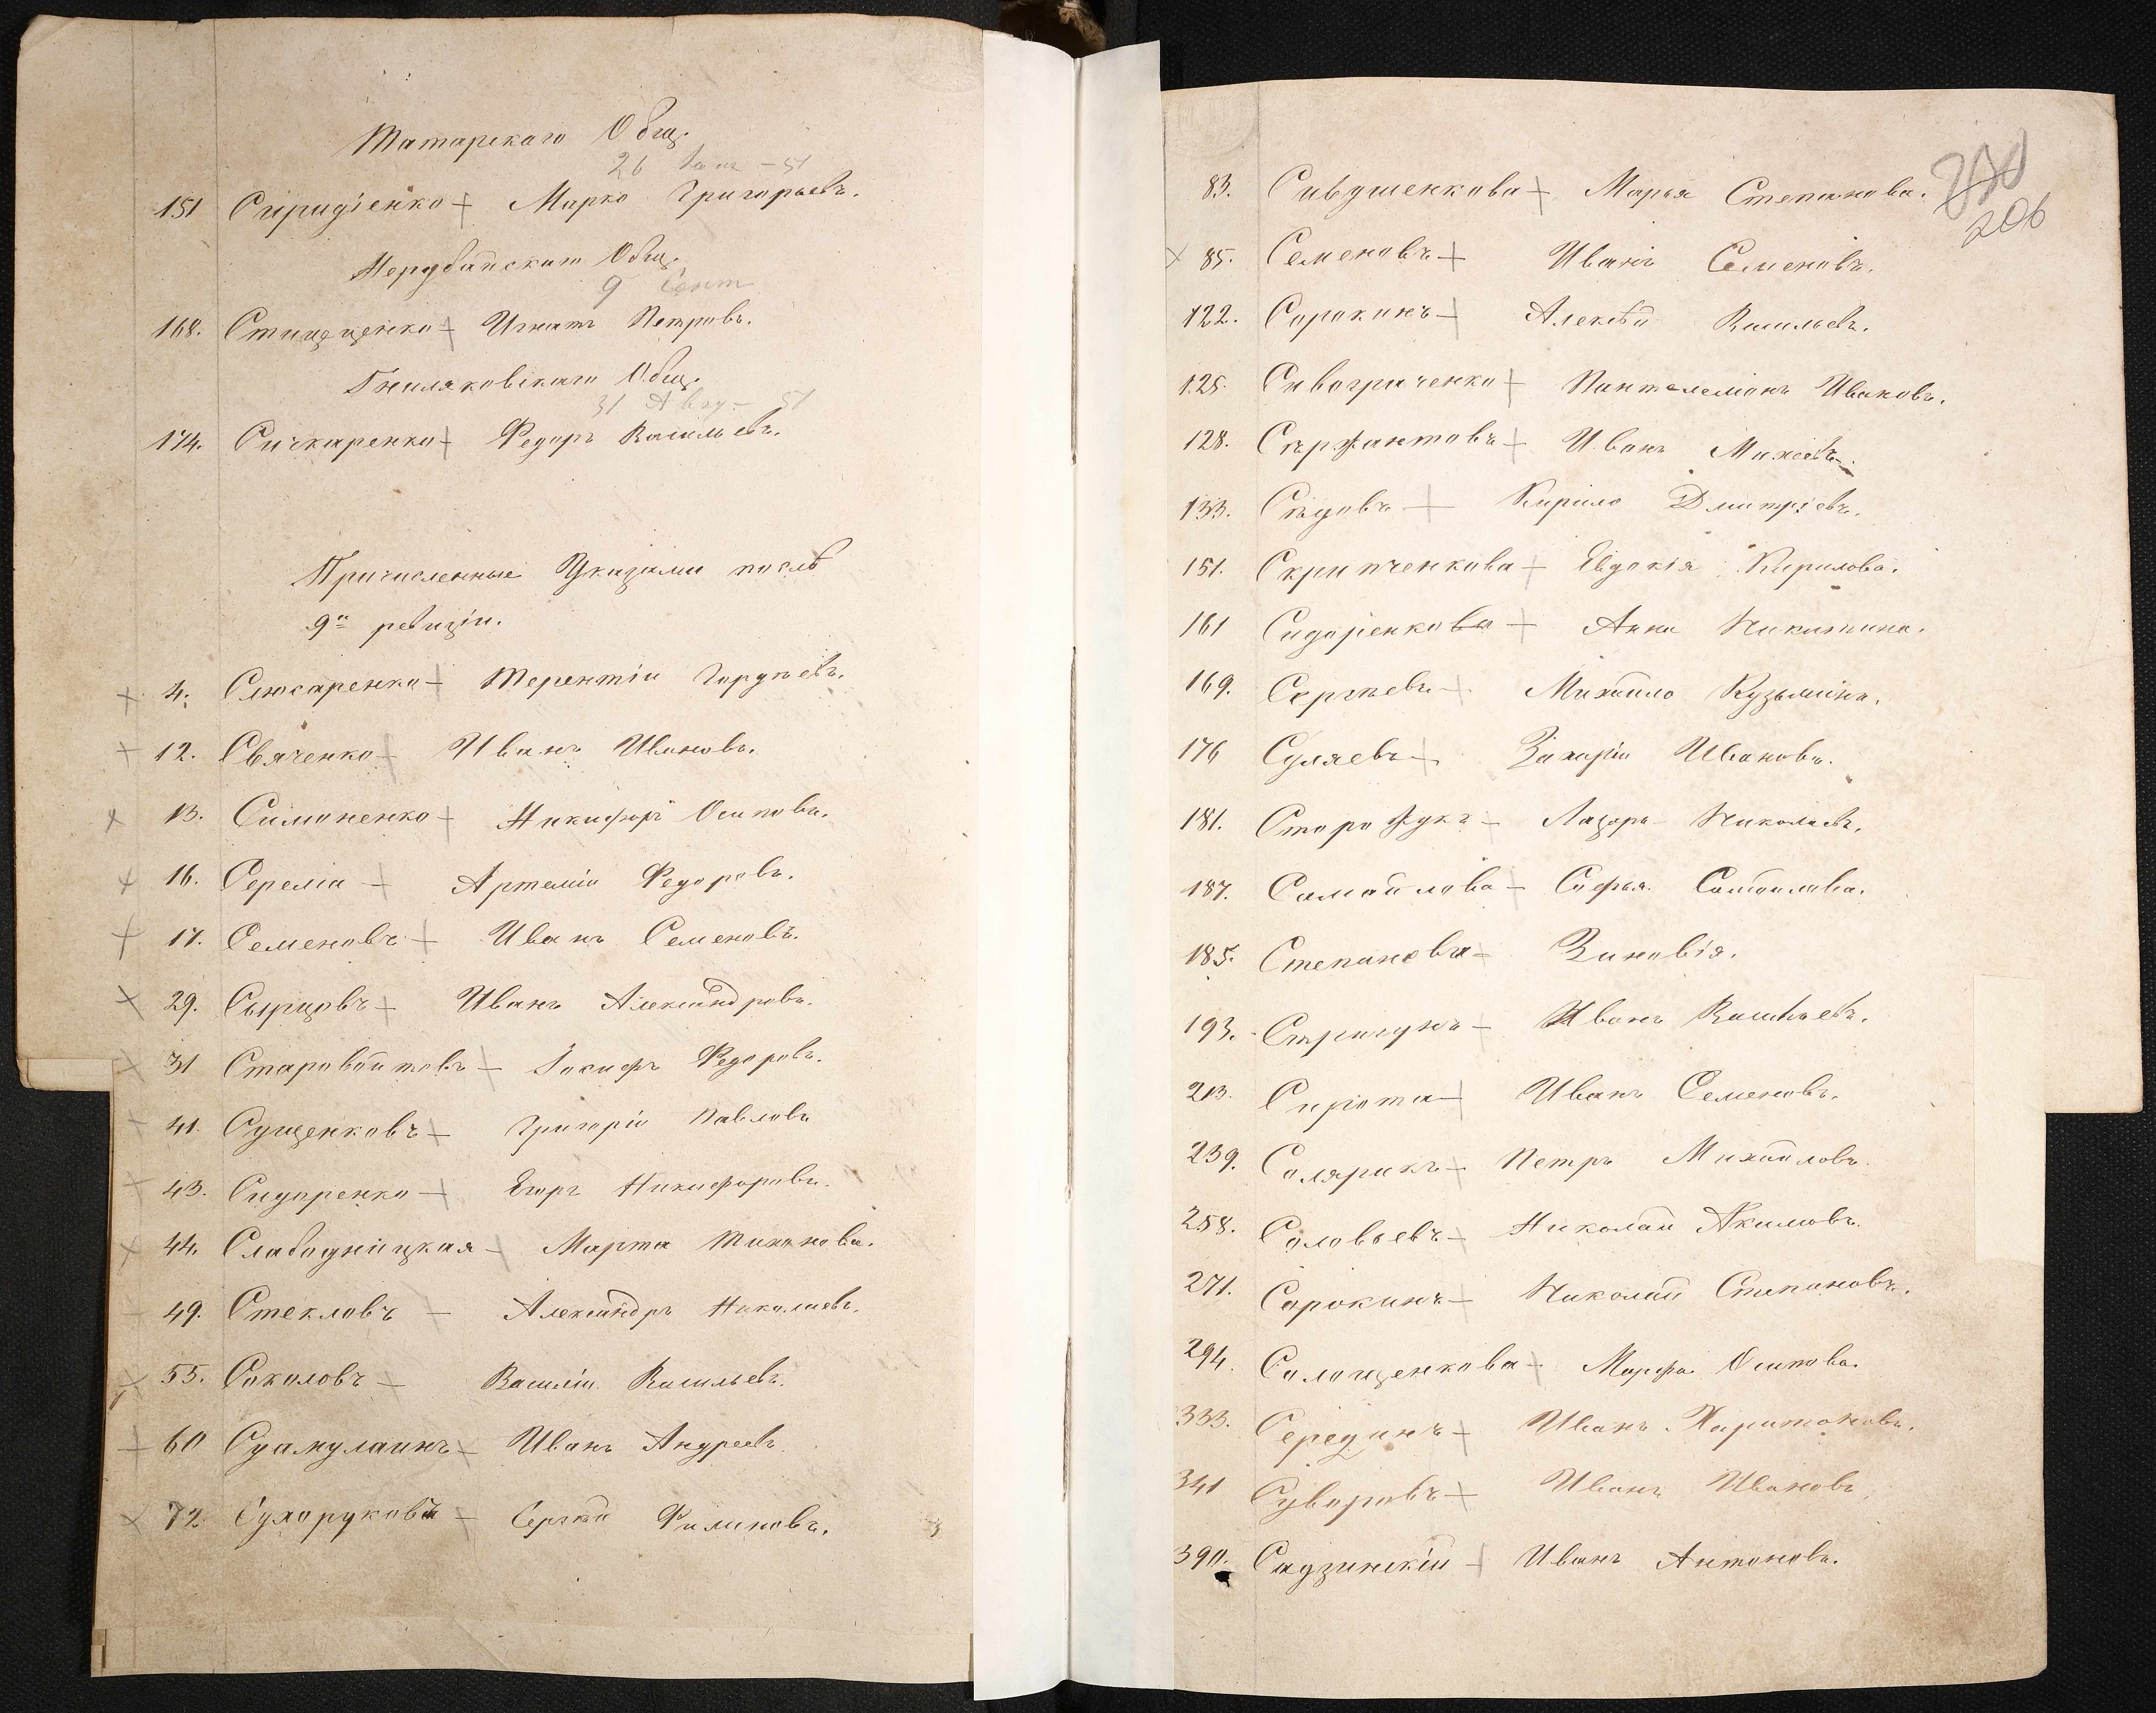 Татарскаго Общ.
26 51
151 Спиридіенко Марко Григорьевъ.
Нерубайскаго Общ.
9 Сент
168. Стищенко Игнатъ Петровъ.
Гниляковскаго Общ.
31 Авгу. 51
174. Сичкаренко Федоръ Васильевъ.
Причисленные Указами послѣ
9й ревизіи.
4. Слюсаренко Терентій Гордѣевъ.
12. Свяченко Иванъ Ивановъ.
13. Симоненко Никифоръ Осиповъ.
16. Серемiа Артемій Федоровъ.
17. Семеновъ Иванъ Семеновъ.
29. Сырцовъ Иванъ Александровъ.
31 Старовойтовъ Іосифъ Федоровъ.
41. Сущенковъ Григорій Павловъ
43. Сидоренко Егоръ Никифоровъ.
44. Слабодницкая Марта Тихонова.
49. Стекловъ Александръ Николаевъ.
55. Соколовъ Василій Васильевъ.
60 Иванъ Андреевъ.
72 Сухоруковъ Сергѣй Филиповъ.
270
206
83. Сивушенкова Марья Степанова.
85. Семеновъ Иванъ Семеновъ.
122. Сорокинъ Алексѣй Васильевъ.
125. Сивограченко Пантелеймонъ Ивановъ.
128. Сержантовъ Иванъ Михѣевъ.
133. Сѣдовъ Кирило Дмитріевъ.
151. Скрипченкова Евдокія Кирилова.
161 Сидоренкова Анна Никитина.
169. Сергѣевъ Михайло Кузьминъ.
176 Суляевъ Захарій Ивановъ.
181. Сторожукъ Лазорь Николаевъ.
187. Самойлова Софья Самойлова.
185. Степанова Зиновія.
193. Стригунъ Иванъ Васильевъ.
213. Сирота Иванъ Семеновъ.
239. Солярикъ Петръ Михайловъ.
258. Соловьевъ Николай Акимовъ.
271. Сорокинъ Николай Степановъ.
294. Солощенкова Марфа Осипова.
333. Серединъ Иванъ Харитоновъ.
341 Суворовъ Иванъ Ивановъ.
390. Садзинскій Иванъ Антоновъ.